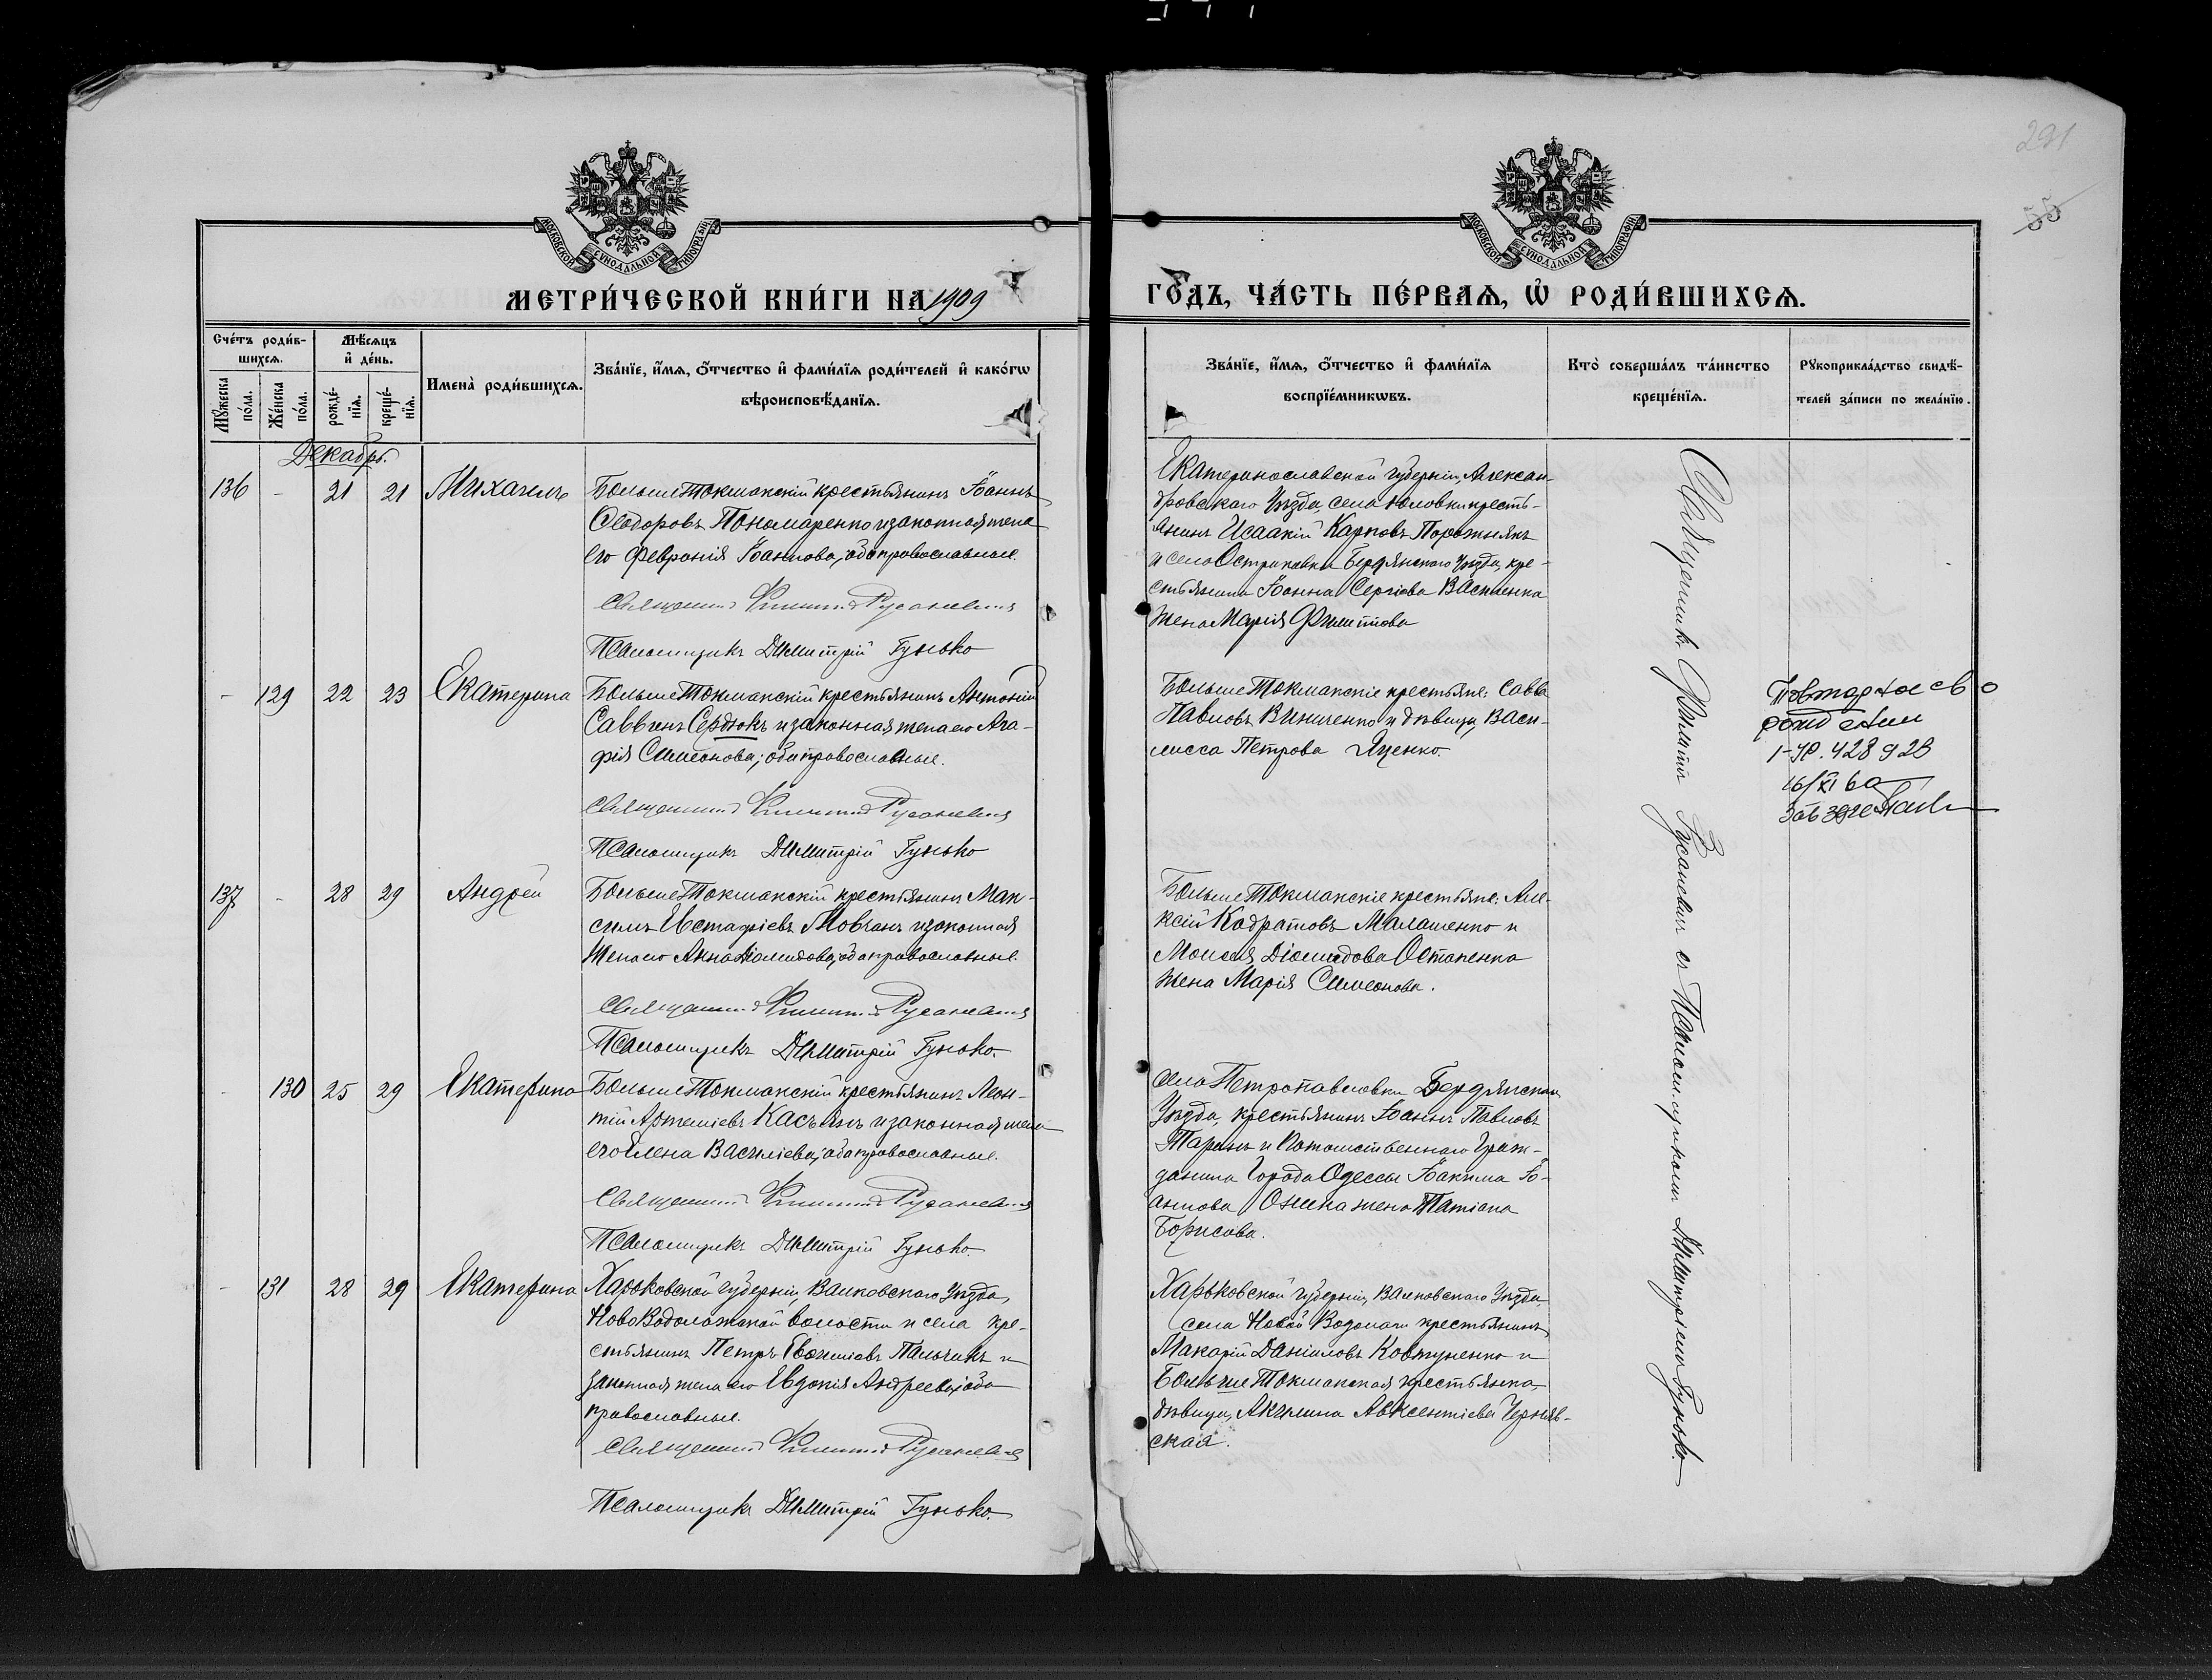 291
55
МОСКОВСКОЙ СѴНОДАЛЬНОЙ ТИПОГРАФІИ
МОСКОВСКОЙ СѴНОДАЛЬНОЙ ТИПОГРАФІИ
МЕТРИ́ЧЕСКОЙ КНИ́ГИ НА 1909
ГО́ДЪ, ЧА́СТЬ ПЕ́РВАѦ, Ѡ҆ РОДИ́ВШИХСѦ.
Сче́тъ роди́в-
шихсѧ.
Мѣ́сѧцъ
и҆ де́нь.
Мꙋ́жеска по́ла.
Же́нска по́ла.
рожде́-
нїѧ.
креще́-
нїѧ.
Имена̀ роди́вшихсѧ.
Зва́нїе, и҆́мѧ, ѻ҆́тчество и҆ фами́лїѧ роди́телей и҆ како́гѡ
вѣроисповѣ́данїѧ.
Зва́нїе, и҆́мѧ, ѻ҆́тчество и҆ фами́лїѧ
воспрїе́мникѡвъ.
Кто̀ соверша́лъ та́инство
креще́нїѧ.
Рꙋкоприкла́дство свидѣ́-
телей за́писи по жела́нїю.
Декабрь.
136 - 21 21 Михаилъ
БольшеТокмакскій крестьянинъ Іоаннъ
Ѳеодоровъ Пономаренко и законная жена
его Февронія Іоаннова, оба православные.
Священникъ Филиппъ Русаневичъ
Псаломщикъ Димитрій Гунько
Екатеринославской губерніи, Алексан-
дровскаго Уѣзда, села кресть-
янинъ Исаакій Карповъ Порожнякъ
и села Остриковки Бердянскаго Уѣзда, кре-
стьянина Іоанна Сергіева Василенка
жена Марія Филиппова
- 129 22 23 Екатерина
БольшеТокмакскій крестьянинъ Антоній
Саввинъ Сердюкъ и законная жена его Ага-
фія Симеонова; оба православные.
Священникъ Филиппъ Русаневичъ
Псаломщикъ Димитрій Гунько
БольшеТокмакскіе крестьяне: Савва
Павловъ Винниченко и дѣвица, Васи-
лисса Петрова Яценко.
Повторное св о
рождении
1-УР. 428928
16/XI 60
Зав загс
137 - 28 29 Андрей
БольшеТокмакскій крестьянинъ Мак-
симъ Евстафіевъ Мовчанъ и законная
жена его Анна Діомидова, оба православные.
Священникъ Филиппъ Русаневичъ
Псаломщикъ Димитрій Гунько.
БольшеТокмакскіе крестьяне: Але-
ксій Кодратовъ Малашенко и
Моисея Діомидова Остапенка
жена Марія Симеонова.
- 130 25 29 Екатерина
БольшеТокмакскій крестьянинъ Леон-
тій Артеміевъ Касьянъ и законная жена
его Елена Василіева, оба православные.
Священникъ Филиппъ Русаневичъ
Псаломщикъ Димитрій Гунько.
села Петропавловки Бердянскаго
Уѣзда, крестьянинъ Іоаннъ Павловъ
Таранъ и Потомственнаго Граж-
данина Города Одессы Іоакима Іо-
аннова жена Татіана
Борисова.
- 131 28 29 Екатерина
Харьковской губерніи, Валковскаго Уѣзда,
НовоВодолажской волости и села кре-
стьянинъ Петръ Евѳиміевъ Пальчикъ и
законная жена его Евдокія Андреева, оба
православные.
Священникъ Филиппъ Русаневичъ
Псаломщикъ Димитрій Гунько.
Харьковской губерніи, Валковскаго Уѣзда,
села Новой Водолаги крестьянинъ
Макарій Даніиловъ Ковтуненко и
БольшеТокмакская крестьянка,
дѣвица, Акилина Авксентіева Черняв-
ская.
Священникъ Филиппъ Русаневичъ съ Псаломщикомъ Димитріемъ Гунько.